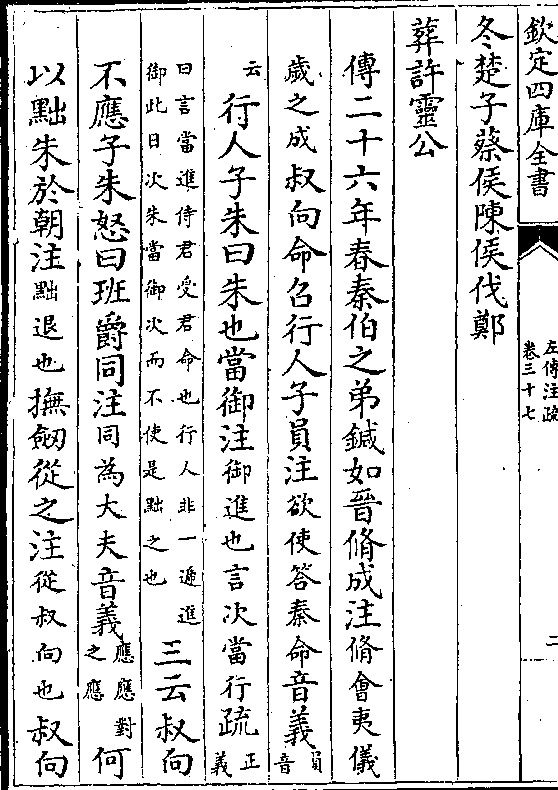 欽定四庫全書
左傳注疏
卷三十七
二
冬楚子蔡侯陳侯伐鄭
葬許靈公
傳二十六年春秦伯之弟鍼如晉脩成注脩會夷儀
歲之成叔向命召行人子員注欲使答秦命音義員音
云行人子朱曰朱也當御注御進也言次當行疏正義
曰言當進侍君受君命也行人非一遞進
御此日次朱當御次而不使是黜之也三云叔向
不應子朱怒曰班爵同注同為大夫音義應應對之應何
以黜朱於朝注黜退也撫劒從之注從叔向也叔向